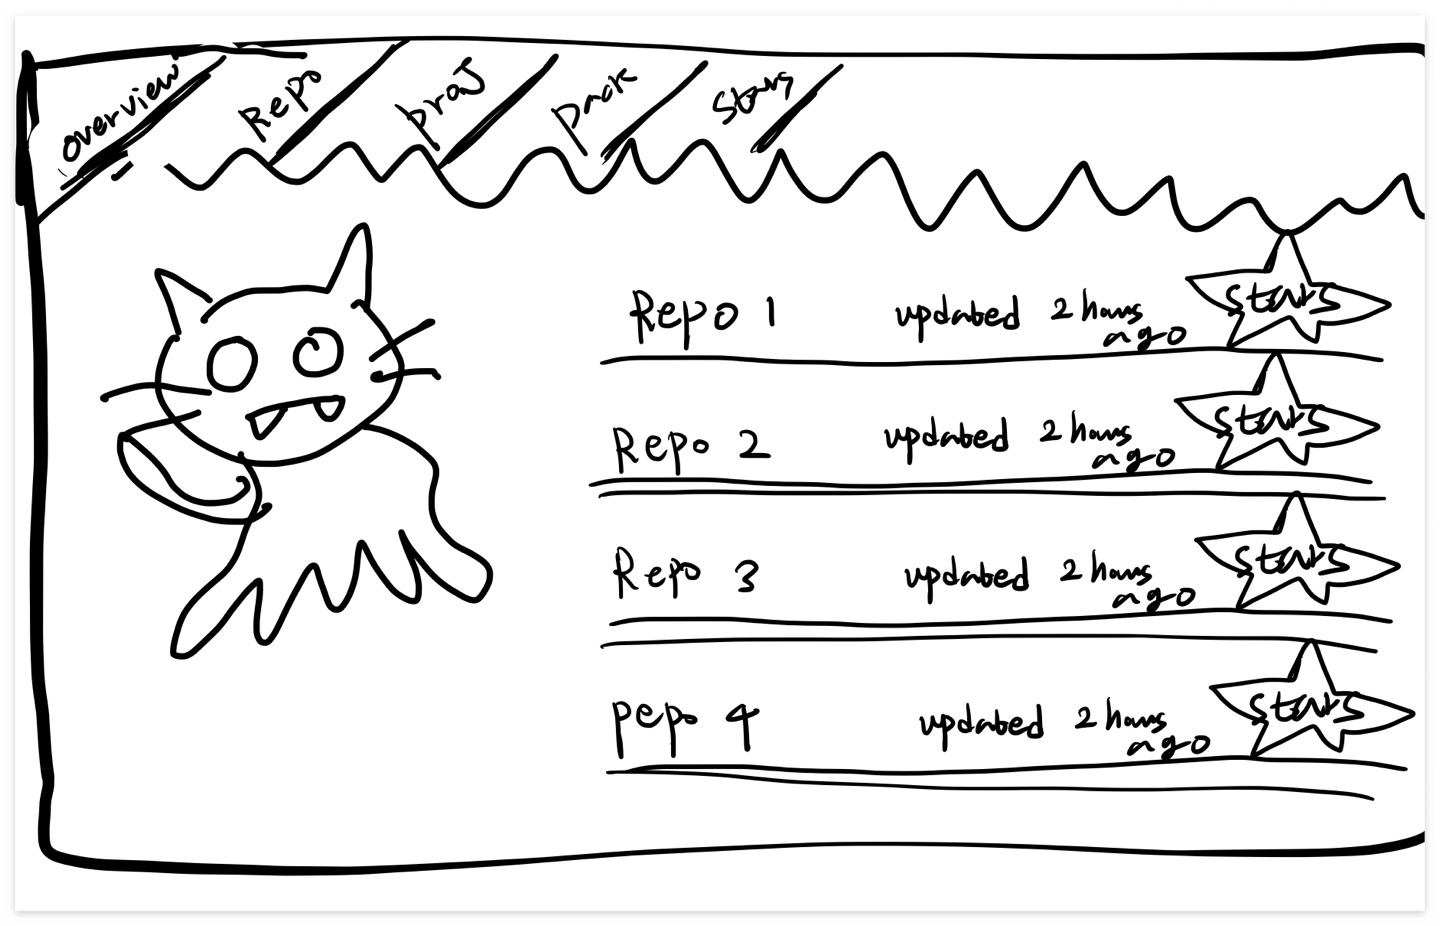 overview Repo proJ pack Stars
Repo 1 updated 2 hours ago stars
Repo 2 updated 2 hours ago stars
Repo 3 updated 2 hours ago stars
pepo 4 updated 2 hours ago stars